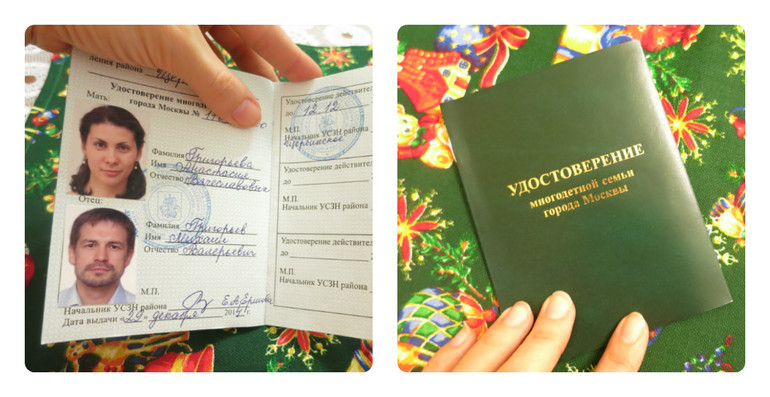 ления района
Удостоверение многод
города Москвы №
Мать:
Фамилия Григорьева
Имя Анастасия
Отчество Вячеславовна
Отец:
Фамилия Григорьев
Имя Михаил
Отчество Валерьевич
М.П.
Начальник УСЗН района
Дата выдачи «29» декабря 2014 г.
Удостоверение действител
до 12.12
М.П.
Начальник УСЗН района
Щербинское
Удостоверение действител
до
М.П.
Начальник УСЗН района
Удостоверение действител
до
М.П.
Начальник УСЗН района
УДОСТОВЕРЕНИЕ
многодетной семьи
города Москвы